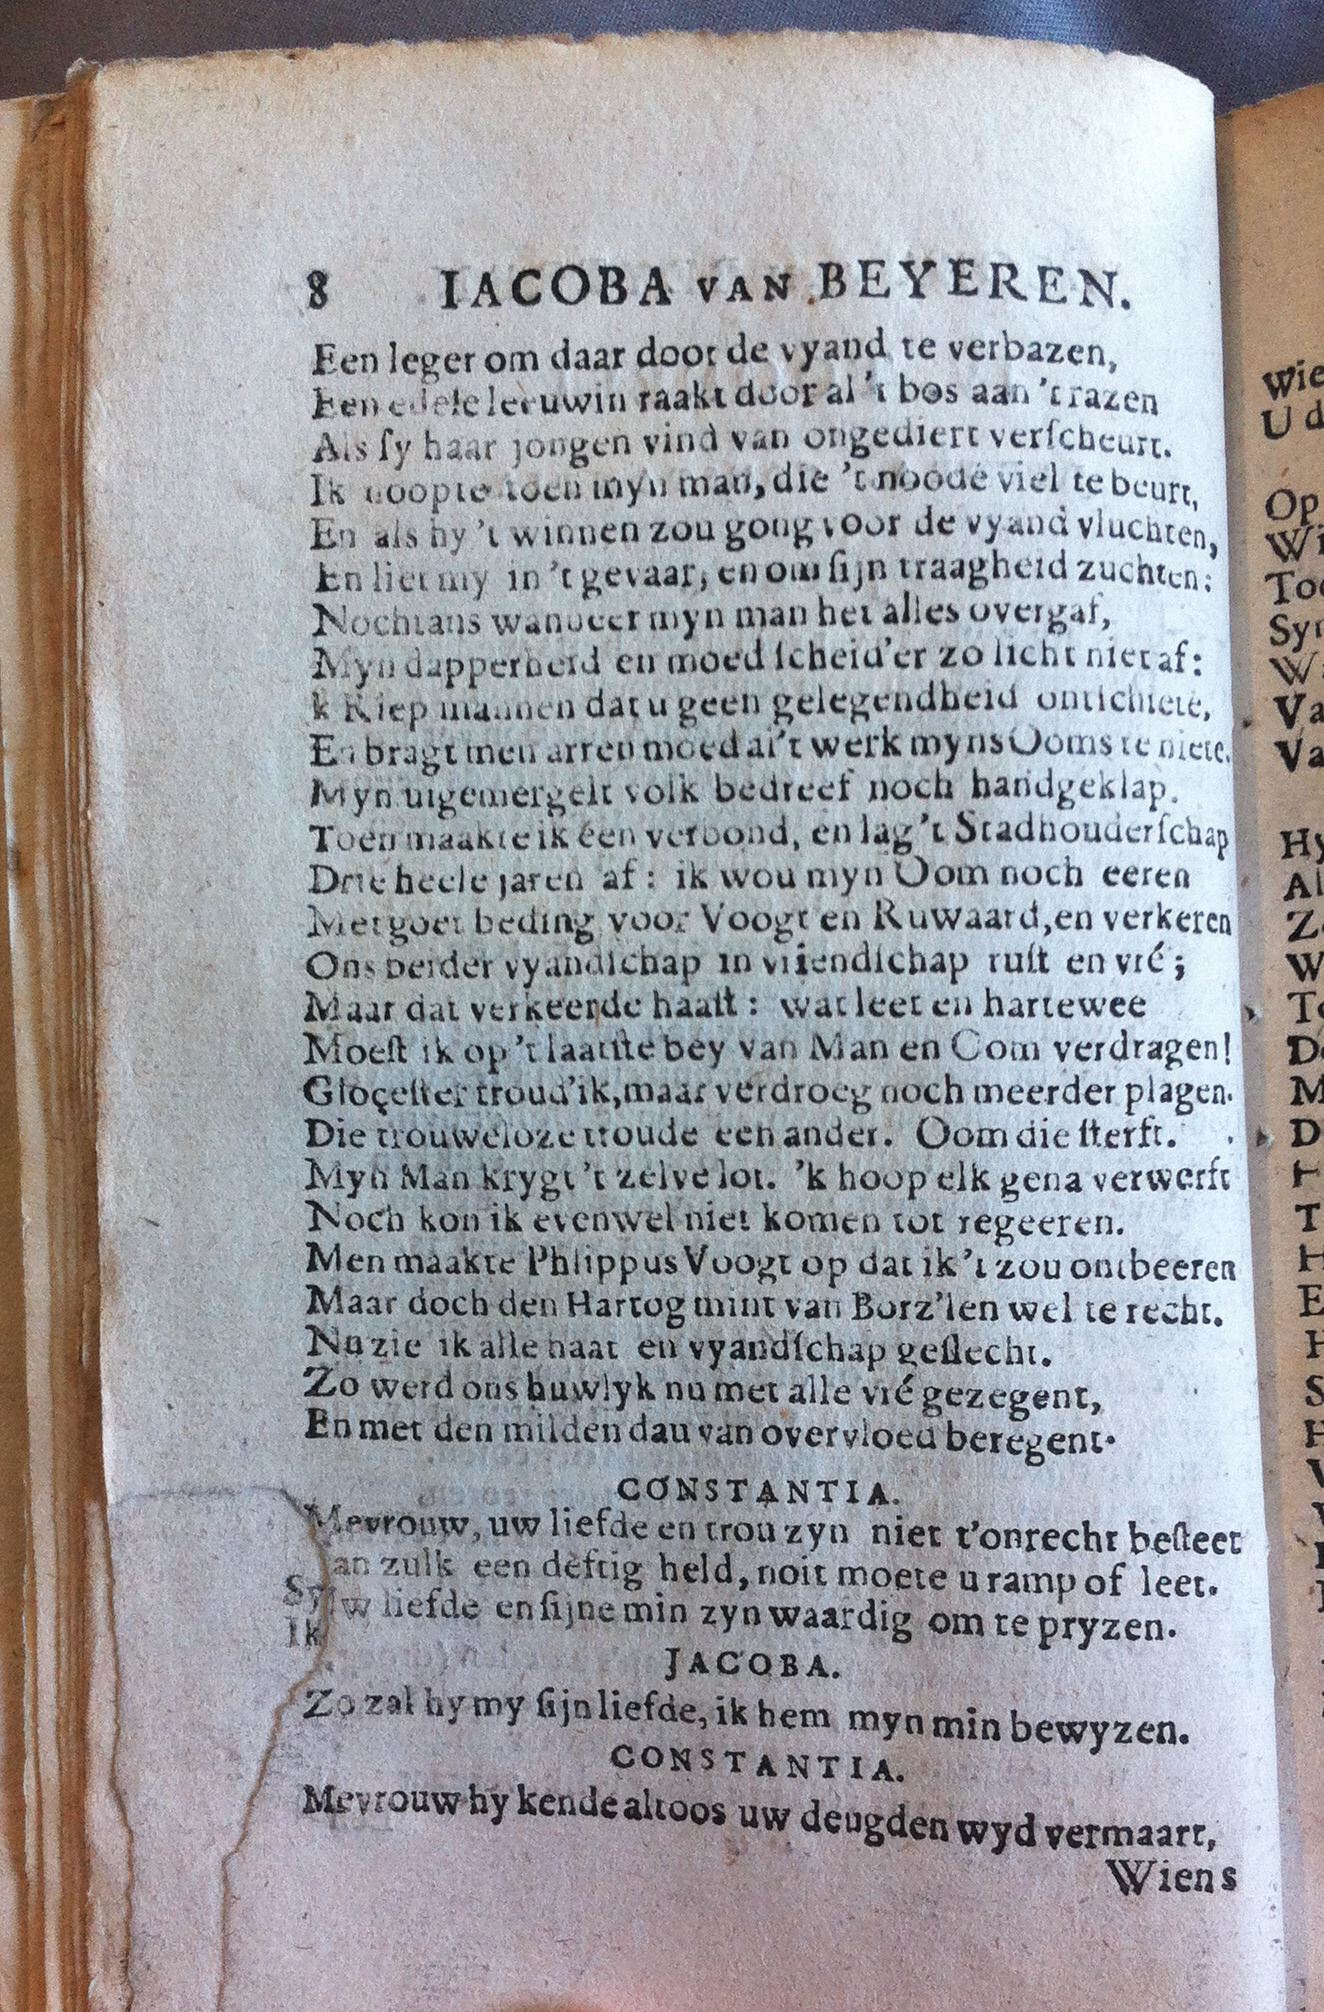 8 IACOBA VAN BEYEREN.
Een leger om daar door de vyand te verbazen,
Een edele leeuwin raakt door al 't bos aan 't razen
Als ſy haar jongen vind van ongediert verſcheurt.
Ik noopte toen myn man, die 't noode viel te beurt,
En als hy 't winnen zou gong voor de vyand vluchten,
En liet my in 't gevaar, en om ſijn traagheid zuchten:
Nochtans wanneer myn man het alles overgaf,
Myn dapperheid en moed ſcheid'er zo licht niet af:
k Riep mannen dat u geen gelegendheid ontſchiete,
En bragt met arren moed al't werk myns Ooms te niete.
Myn uigemergelt volk bedreef noch handgeklap.
Toen maakte ik een verbond, en lag 't Stadhouderſchap
Drie heele jaren af: ik wou myn Oom noch eeren
Met goet beding voor Voogt en Ruwaard, en verkeren
Ons beider vyandſchap in vriendſchap ruſt en vré;
Maar dat verkeerde haaſt: wat leet en hartewee
Moeſt ik op 't laatſte bey van Man en Oom verdragen!
Gloçeſter troud'ik, maar verdroeg noch meerder plagen.
Die trouweloze troude een ander. Oom die ſterft.
Myn Man krygt 't zelve lot. 'k hoop elk gena verwerft
Noch kon ik evenwel niet komen tot regeeren.
Men maakte Phlippus Voogt op dat ik 't zou ontbeeren
Maar doch den Hartog mint van Borz'len wel te recht.
Nu zie ik alle haat en vyandſchap geſlecht.
Zo werd ons huwlyk nu met alle vré gezegent,
En met den milden dau van overvloed beregent.
CONSTANTIA.
Mevrouw, uw liefde en trou zyn niet t'onrecht beſteet
an zulk een deftig held, noit moete u ramp of leet.
Sy w liefde en ſijne min zyn waardig om te pryzen.
Ik
JACOBA.
Zo zal hy my ſijn liefde, ik hem myn min bewyzen.
CONSTANTIA.
Mevrouw hy kende altoos uw deugden wyd vermaart,
Wiens
Wie
U d
Op
Wi
Toe
Syn
Wa
Va
Va
Hy
Al
Ze
W
To
De
M
D
H
T
H
E
H
S
H
V